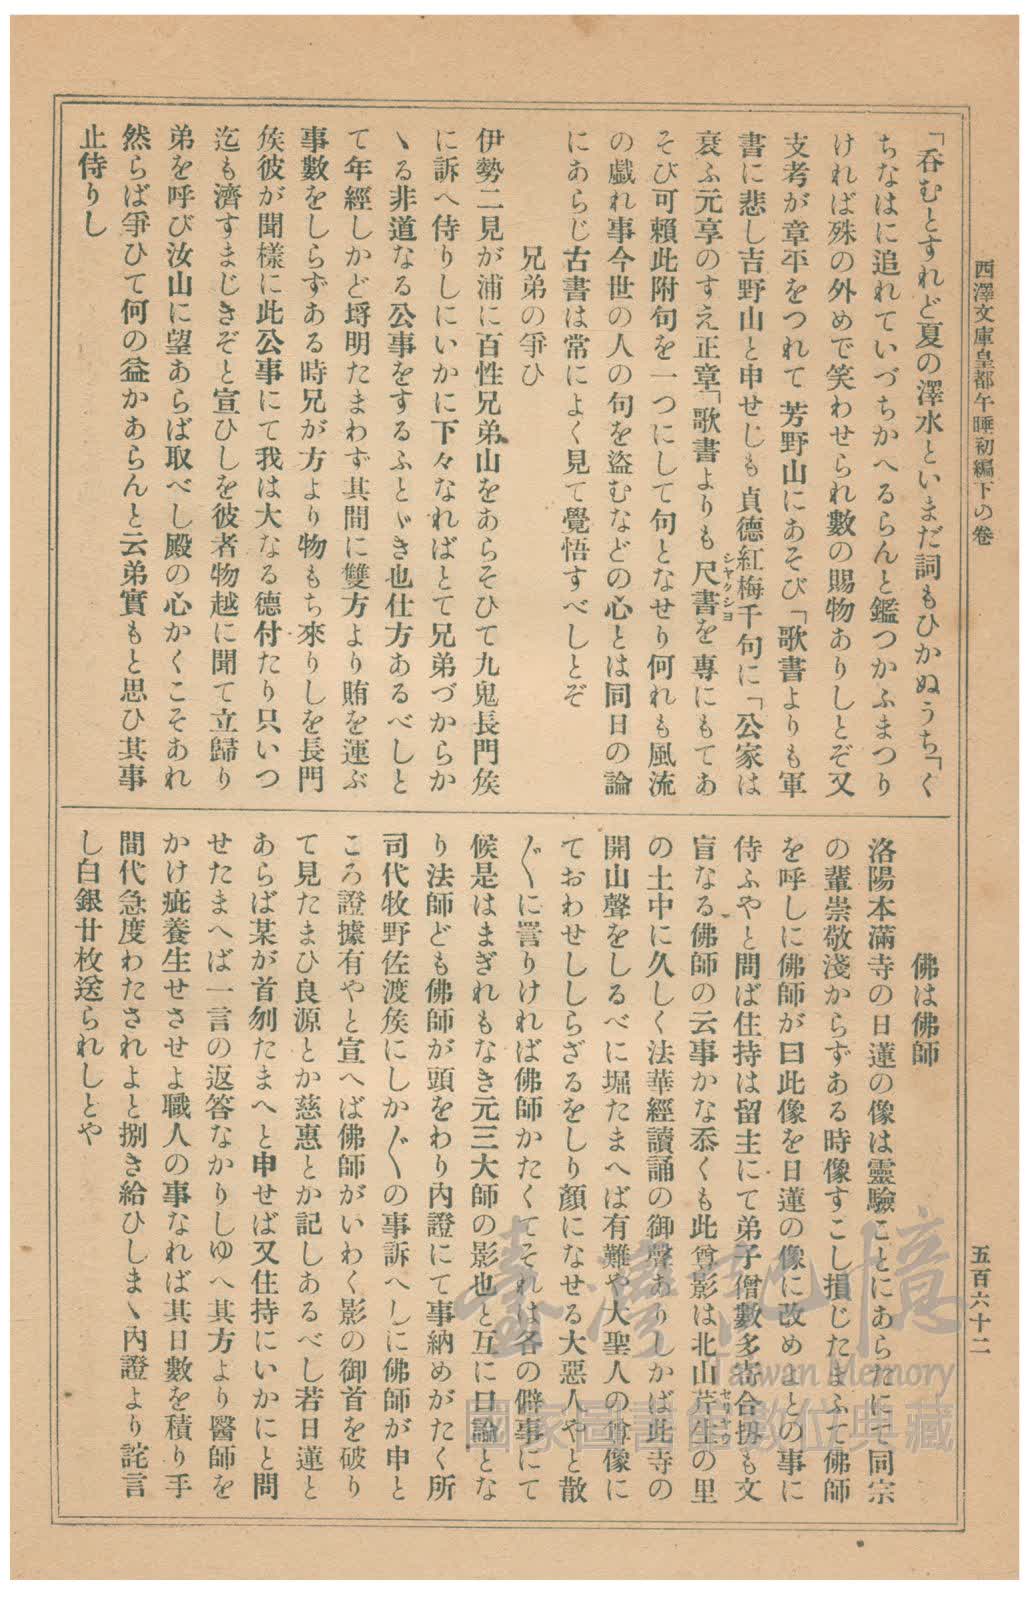 西澤文庫皇都午睡初編下の卷
五百六十二
「呑むとすれど夏の澤水といまだ詞もひかぬうち「く
ちなはに追れていづちかへるらんと鑑つかふまつり
ければ殊の外めで笑わせられ數の賜物ありしとぞ又
支考が章平をつれて芳野山にあそび「歌書よりも軍
書に悲し吉野山と申せしも貞德紅梅千句に「公家は
衰ふ元享のすえ正章「歌書よりも尺書を專にもてあ
シヤクシヨ
そび可賴此附句を一つにして句となせり何れも風流
の戯れ事今世の人の句を盜むなどの心とは同日の論
にあらじ古書は常によく見て覺悟すべしとぞ
兄弟の爭ひ
伊勢二見が浦に百性兄弟山をあらそひて九鬼長門矦
に訴へ侍りしにいかに下々なればとて兄弟づからか
ヽる非道なる公事をするふとゞき也仕方あるべしと
て年經しかど埓明たまわず其間に雙方より賄を運ぶ
事數をしらずある時兄が方より物もち來りしを長門
矦彼が聞樣に此公事にて我は大なる德付たり只いつ
迄も濟すまじきぞと宣ひしを彼者物越に聞て立歸り
弟を呼び汝山に望あらば取べし殿の心かくこそあれ
然らば爭ひて何の益かあらんと云弟實もと思ひ其事
止侍りし
佛は佛師
洛陽本滿寺の日蓮の像は靈驗ことにあらたにて同宗
の輩崇敬淺からずある時像すこし損じたまふて佛師
を呼しに佛師が曰此像を日蓮の像に改めよとの事に
侍ふやと問ば住持は留主にて弟子僧數多寄合扨も文
盲なる佛師の云事かな忝くも此尊影は北山芹生の里
セリヤウ
の土中に久しく法華經讀誦の御聲ありしかば此寺の
開山聲をしるべに堀たまへば有難や大聖人の尊像に
ておわせししらざるをしり顏になせる大惡人やと散
〴〵に詈りければ佛師かたくてそれは各の僻事にて
候是はまぎれもなき元三大師の影也と互に口論とな
り法師ども佛師が頭をわり內證にて事納めがたく所
司代牧野佐渡矦にしか〴〵の事訴へしに佛師が申と
ころ證據有やと宣へば佛師がいわく影の御首を破り
て見たまひ良源とか慈惠とか記しあるべし若日蓮と
あらば某が首刎たまへと申せば又住持にいかにと問
せたまへば一言の返答なかりしゆへ其方より醫師を
かけ疵養生せさせよ職人の事なれば其日數を積り手
間代急度わたされよと捌き給ひしまヽ內證より詫言
し白銀廿枚送られしとや
臺灣記憶
Taiwan Memory
國家圖書館數位典藏